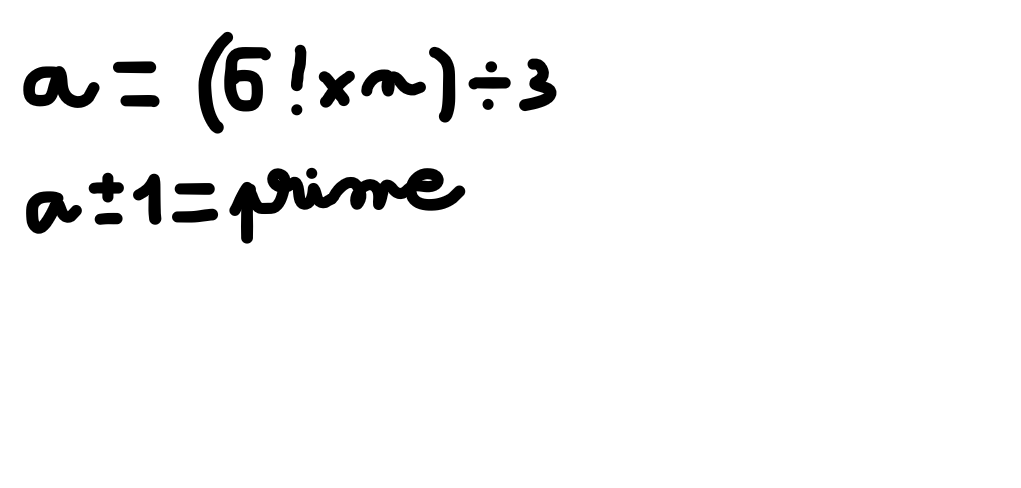 a = (6! x n) ÷ 3
a ± 1 = prime